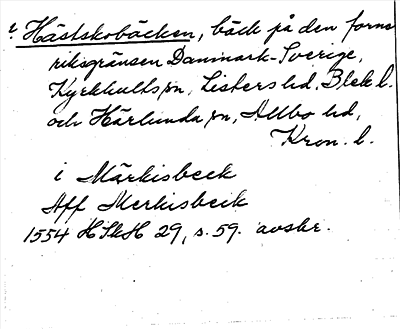 ? Hästskobäcken, bäck på den forna
riksgränsen Danmark-Sverige,
Kyrkhults sn, Listers hd, Blek. l.
och Härlunda sn, Allbo hd,
Kron. l.
i Märkisbeck
Aff Merkisbeck
1554 HSkH 29, s. 59. avskr.